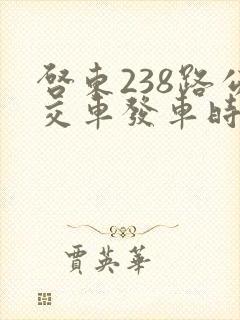 啓東238路公
交車發車時
賈英華